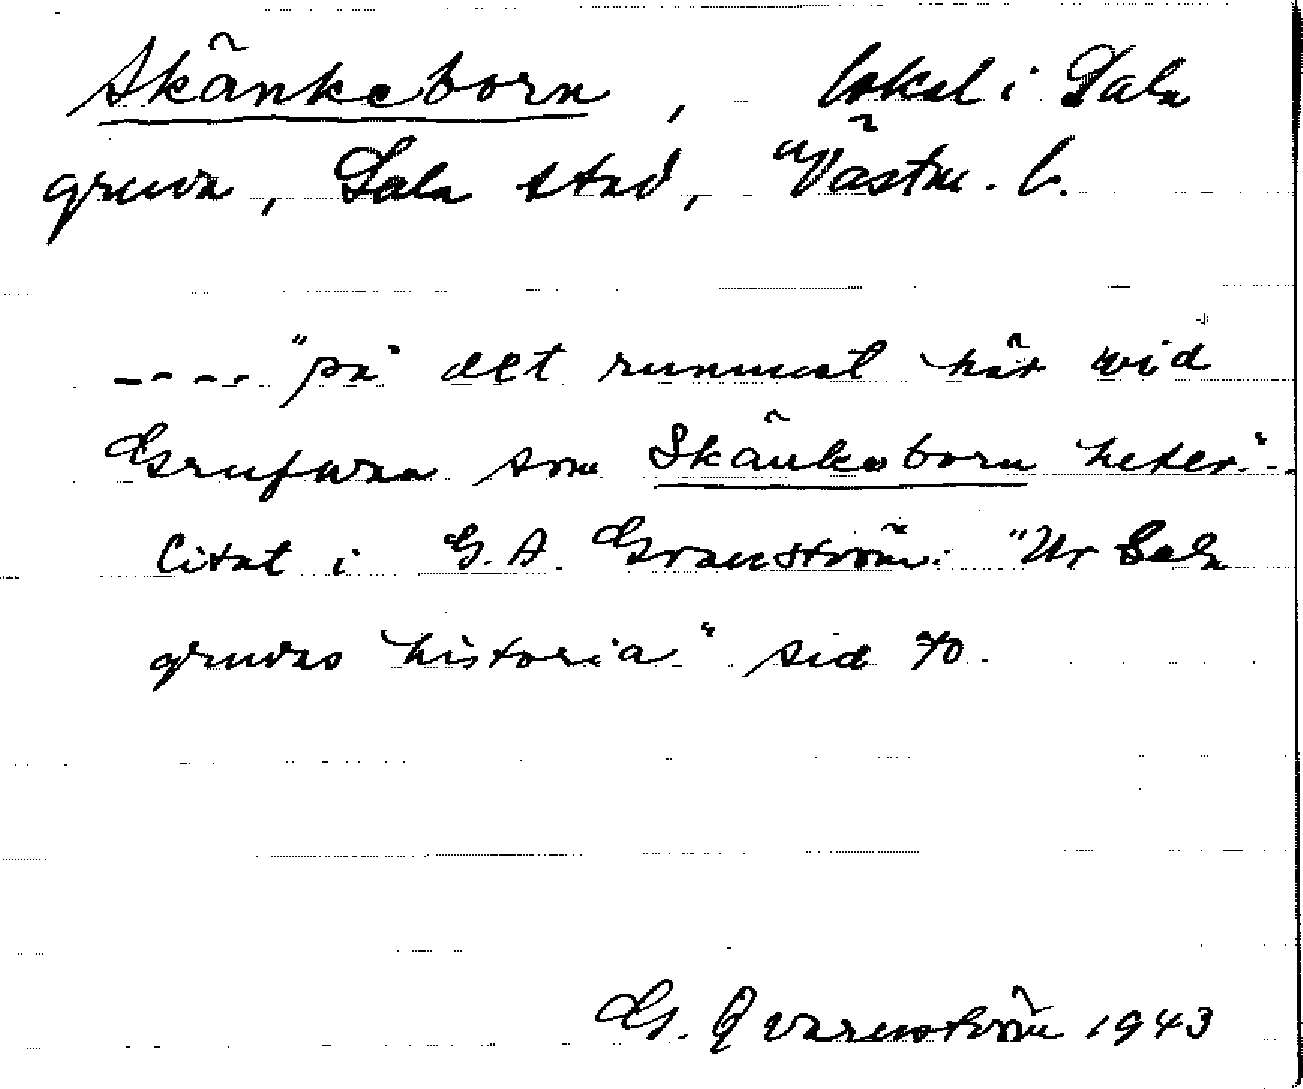 Skänkeborn, lokal i Sala
gruva, Sala stad, Västm. l.
---- "på det rummet här wid
Grufwan som Skänkeborn heter"-.
Citat i G.A. Granström: "Ur Sala
gruvas historia" sid 70.
G. Qvarnström 1943